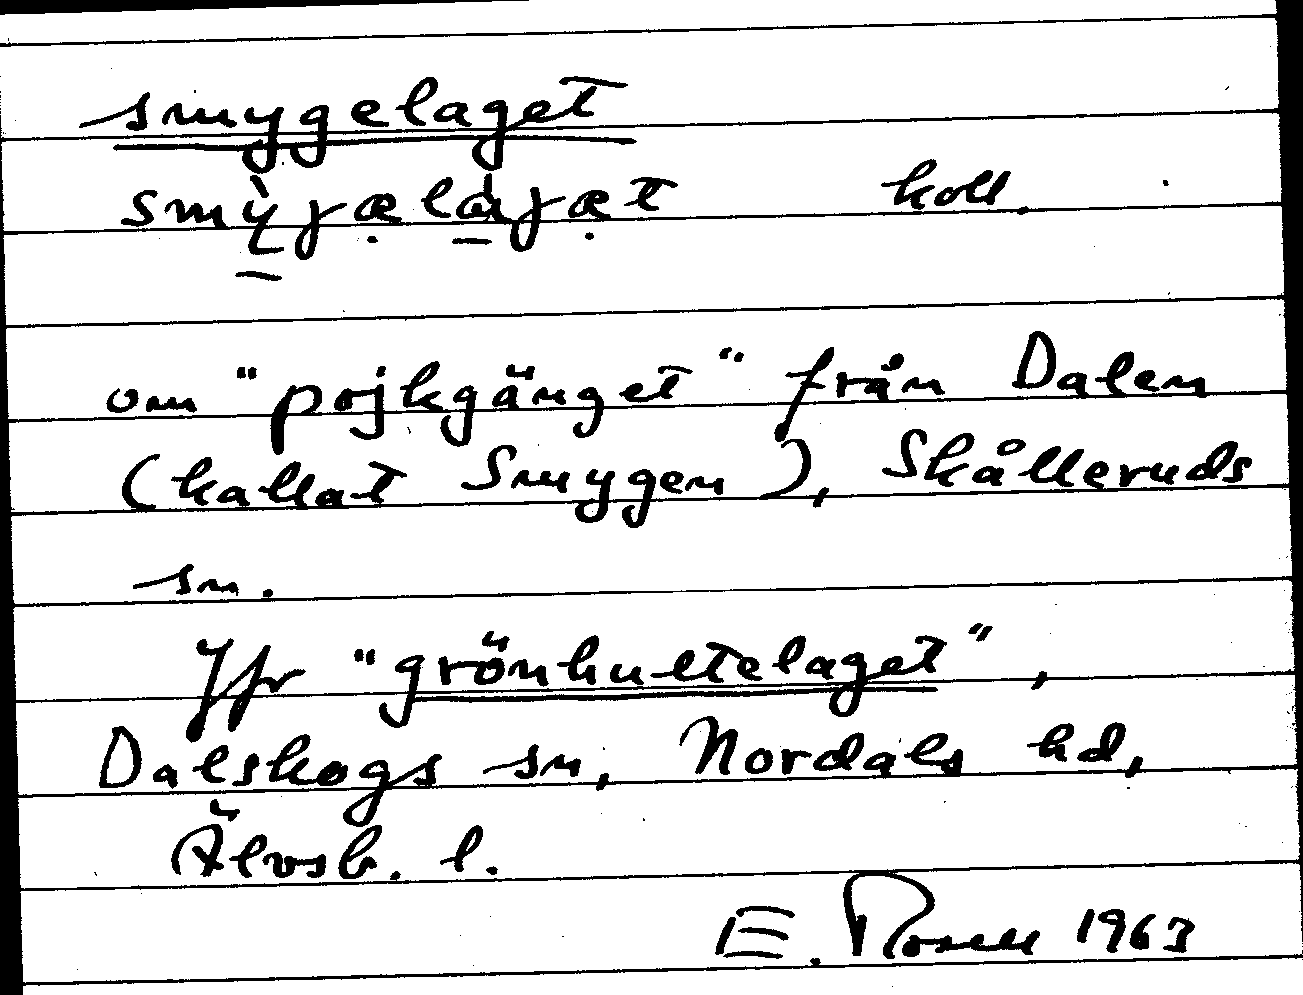 smygelaget
smỳɟælaɟæt koll.
om "pojkgänget" från Dalen
(kallat Smygen), Skålleruds
sn.
Jfr "grönhultelaget",
Dalskogs sn, Nordals hd,
Älvsb. l.
E. Rosell 1963